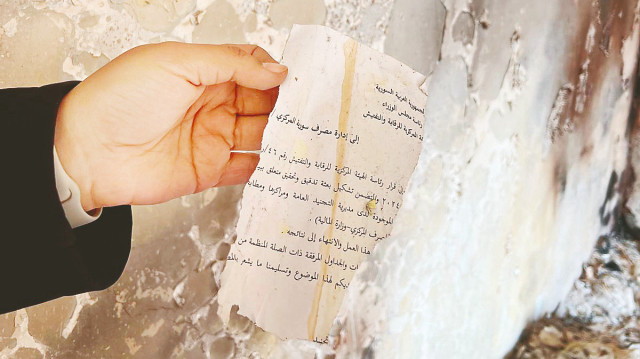 الجمهورية العربية السورية
رئاسة مجلس الوزراء
المركزية للرقابة والتفتيش
إلى إدارة مصرف سورية المركزي
قرار رئاسة الهيئة المركزية للرقابة والتفتيش رقم ٤٦
والمتضمن تشكيل بعثة تدقيق وتحقيق متعلق
الموجودة لدى مديرية التجنيد العامة ومراكزها
المركزي-وزارة المالية).
هذا العمل والانتهاء إلى نتائجه.
والجداول المرفقة ذات الصلة المنظمة من
لهذا الموضوع وتسليمنا ما يشعر